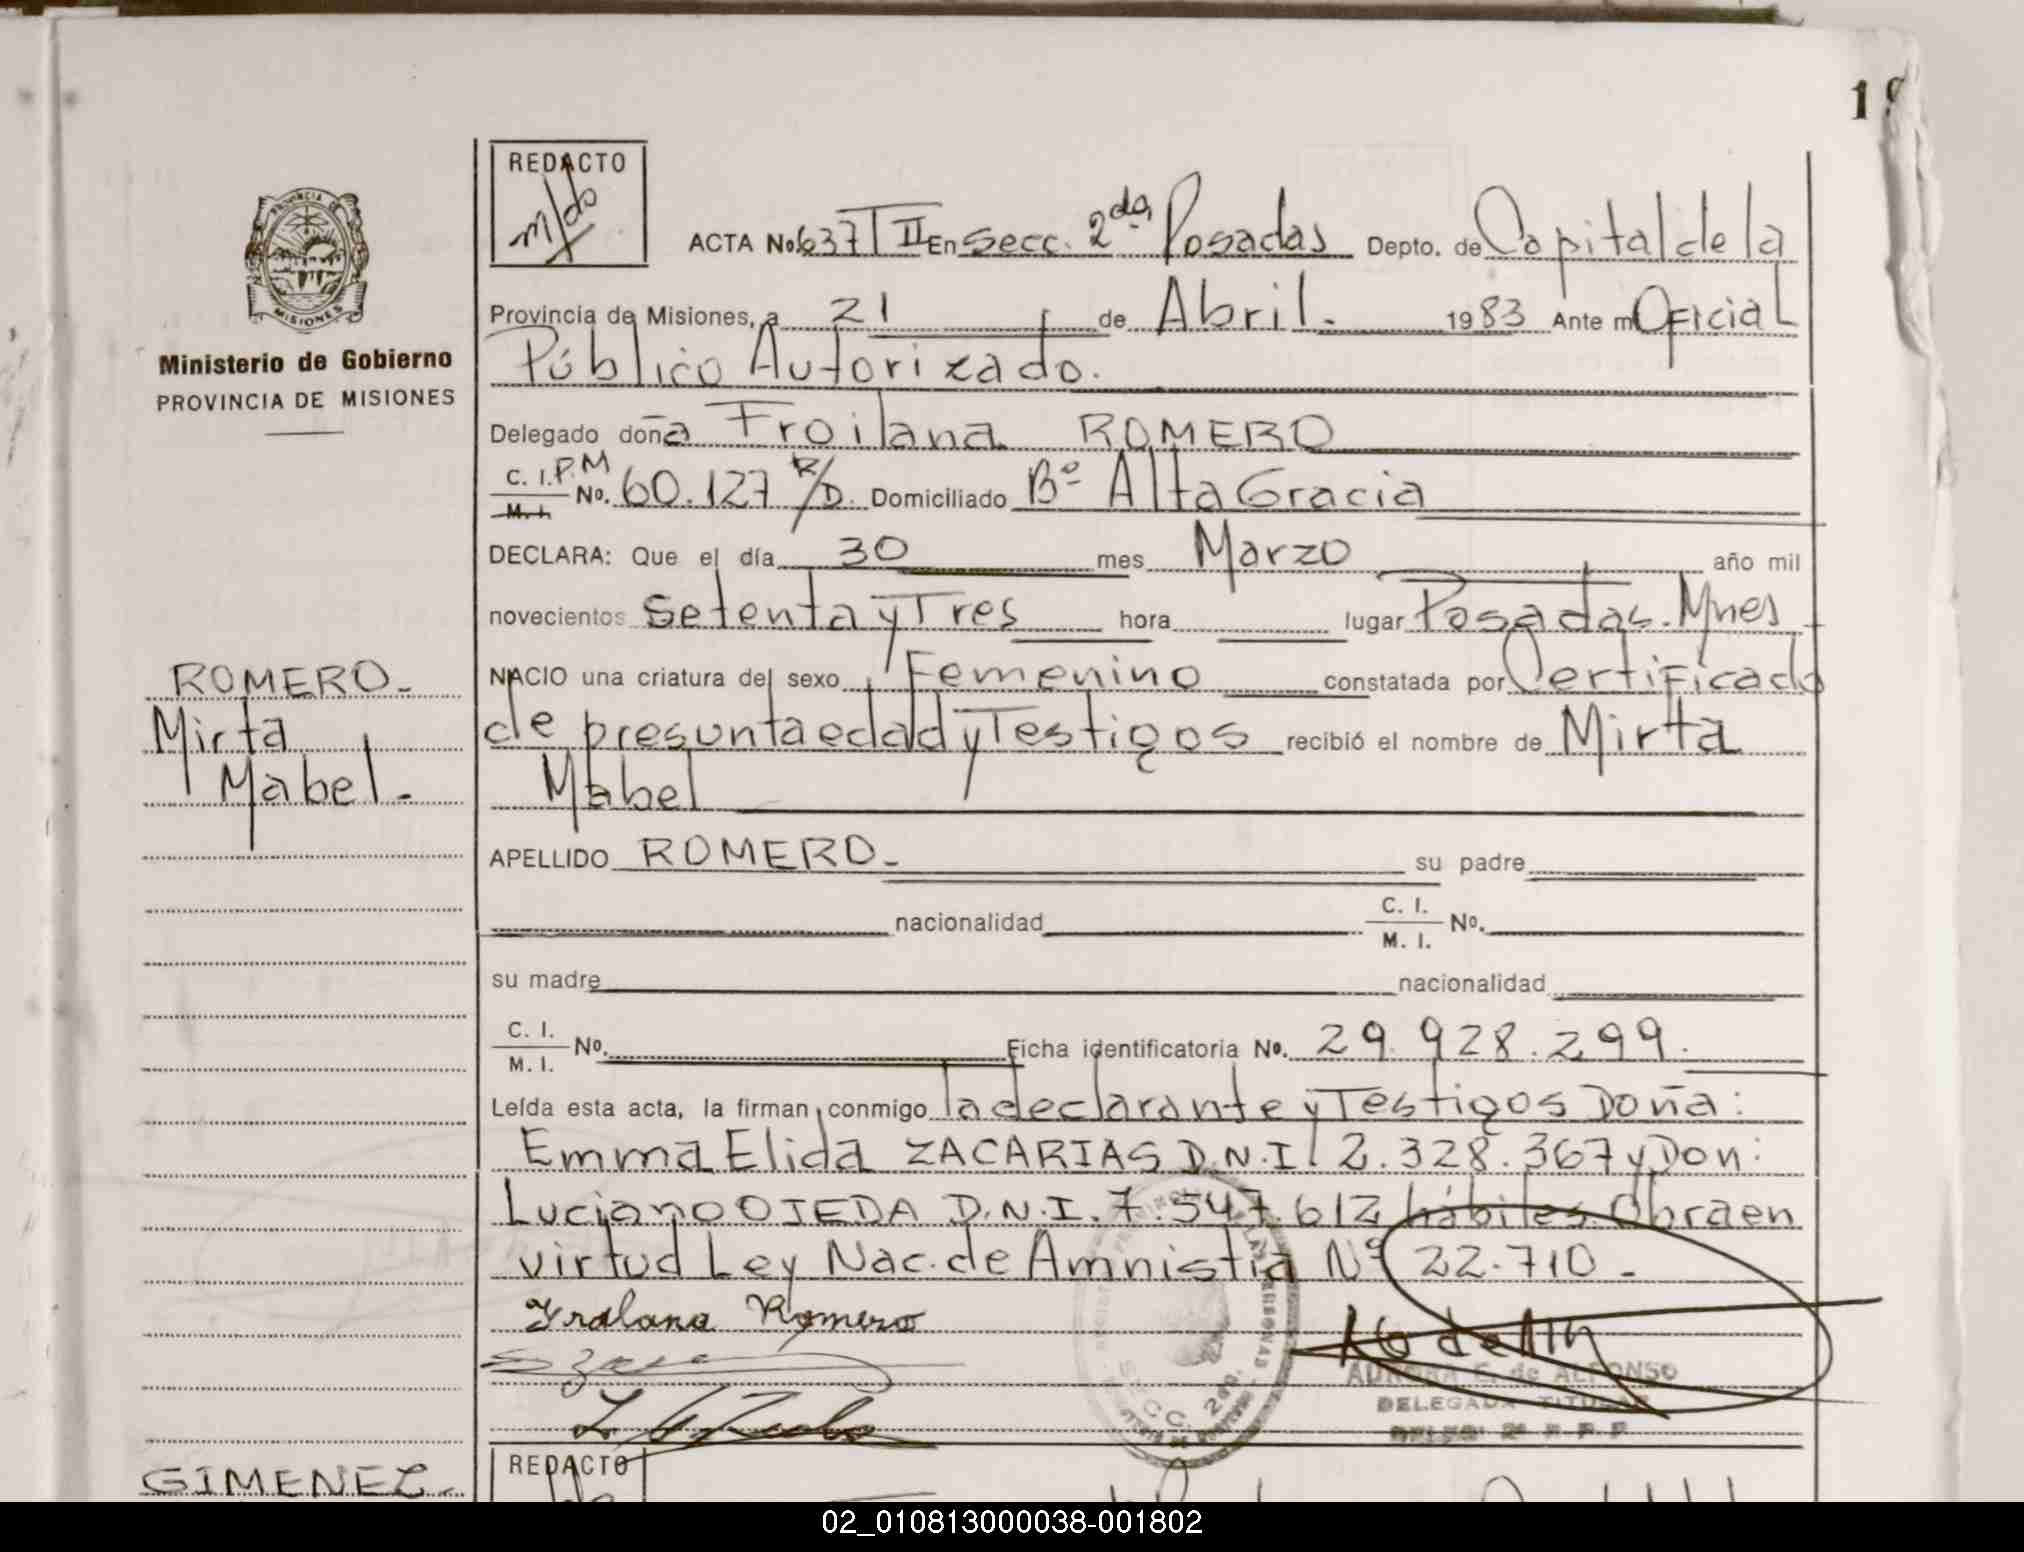 19
REDACTO
PROVINCIA DE
MISIONES
Ministerio de Gobierno
PROVINCIA DE MISIONES
ACTA No. 637 T II En Secc. 2da. Posadas Depto. de Capital de la
Provincia de Misiones, a 21 de Abril. 1983 Ante mi Oficial
Público Autorizado.
Delegado doña Froilana ROMERO
C. I. P.M
M. I. No. 60.127 R/D. Domiciliado Bº Alta Gracia
DECLARA: Que el día 30 mes Marzo año mil
novecientos Setenta y Tres hora lugar Posadas. Mnes
ROMERO_
Mirta
Mabel._
NACIO una criatura del sexo Femenino constatada por Certificado
de presunta edad y Testigos recibió el nombre de Mirta
Mabel
APELLIDO ROMERO_ su padre
nacionalidad C. I. M. I. No.
su madre nacionalidad
C. I. M. I. No. Ficha identificatoria No. 29.928.299.
Leída esta acta, la firman conmigo la declarante y Testigos Doña:
Emma Elida ZACARIAS D.N.I. 2.328.367 y Don:
Luciano OJEDA D.N.I. 7.547.612 hábiles. Obra en
virtud Ley Nac. de Amnistia Nº 22.710_
Fralana Romero
SECC. 2da.
AURORA E. de ALFONSO
DELEGADA TITULAR
GIMENEZ_
REDACTO
02_010813000038-001802